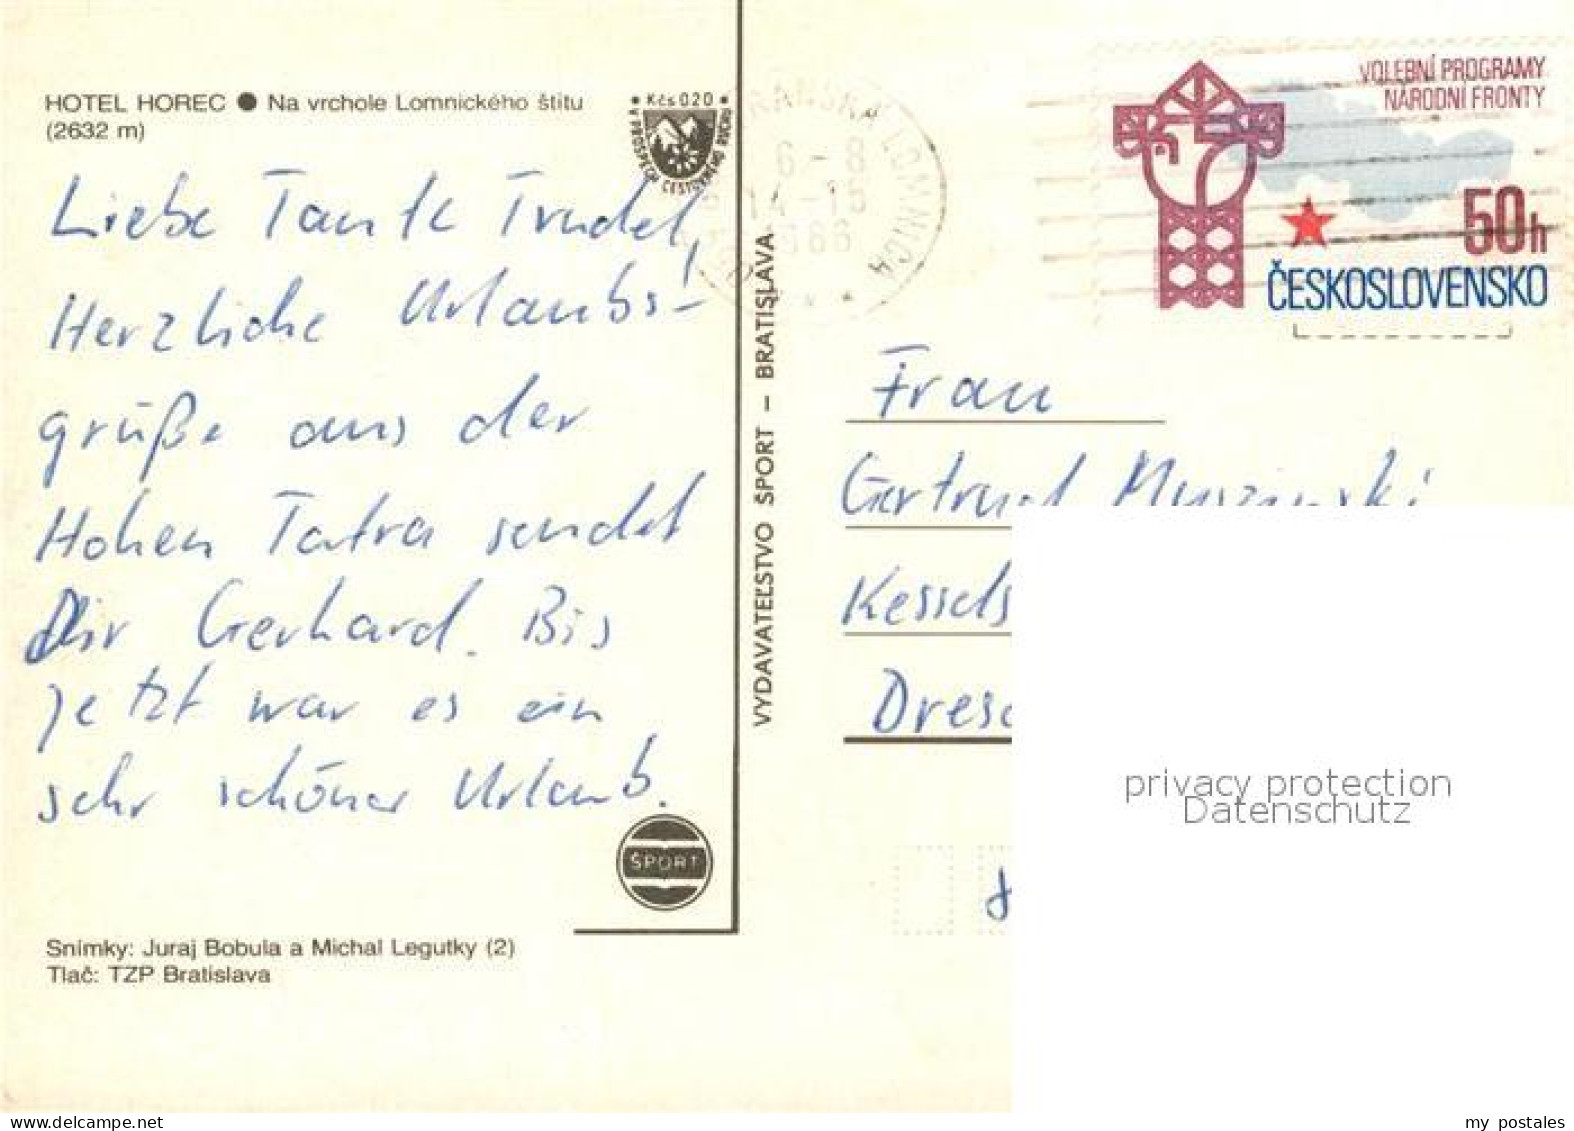 HOTEL HOREC ● Na vrchole Lomnického štítu
(2632 m)
Kčs 020
V PROSPECH CESTOVNÉHO RUCHU
Liebe Tante Trudel,
Herzliche Urlaubs-
grüße aus der
Hohen Tatra sendet
Dir Gerhard. Bis
jetzt war es ein
sehr schöner Urlaub.
ŠPORT
Snímky: Juraj Bobula a Michal Legutky (2)
Tlač: TZP Bratislava
VYDAVATEĽSTVO ŠPORT – BRATISLAVA
LOMNICA
VOLEBNÍ PROGRAMY
NÁRODNÍ FRONTY
50h
ČESKOSLOVENSKO
Frau
Gertrud
privacy protection
Datenschutz
my postales
www.delcampe.net